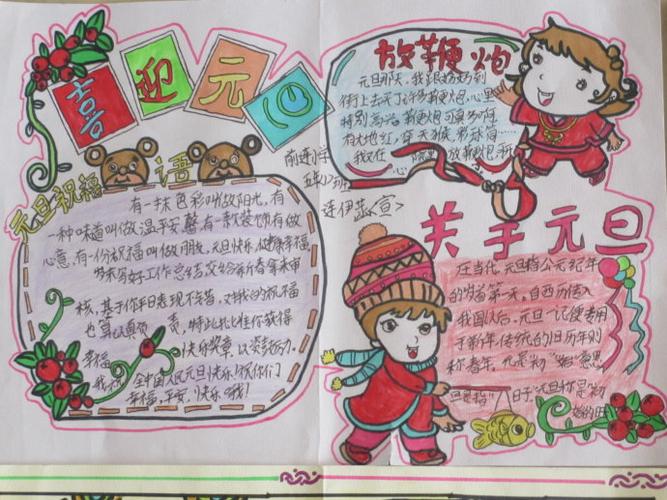 喜迎元旦
元旦祝福语
有一抹色彩叫做阳光,有
一种味道叫做温平安馨,有一款装饰有做
心意,有一份祝福叫做朋友,元旦快乐,健康幸福
岁末写好工作总结交给新春年来审
核,基于你平日表现不错,对我的祝福
也算认真
责,特此批准你获得
幸福
快乐奖章,以资鼓励.
我祝
全中国人民元旦快乐!祝你们
幸福,平安,快乐哦!
前连小学
五年(2)班
连伊蕊<宣>
放鞭炮
元旦那天,我跟妈妈到
街上去买了许多鞭炮,心里
特别高兴,鞭炮可真多呀
有大地红,穿天猴,彩球筒……
我在
心
放鞭炮,玩
关于元旦
在当代,元旦指公元纪年
的岁首第一天,自西历传入
我国以后,元旦一词便专用
于新年,传统的旧历年则
称春年,元是为"始"意思,
旦是指
日子,"元旦"即是"初
始的日